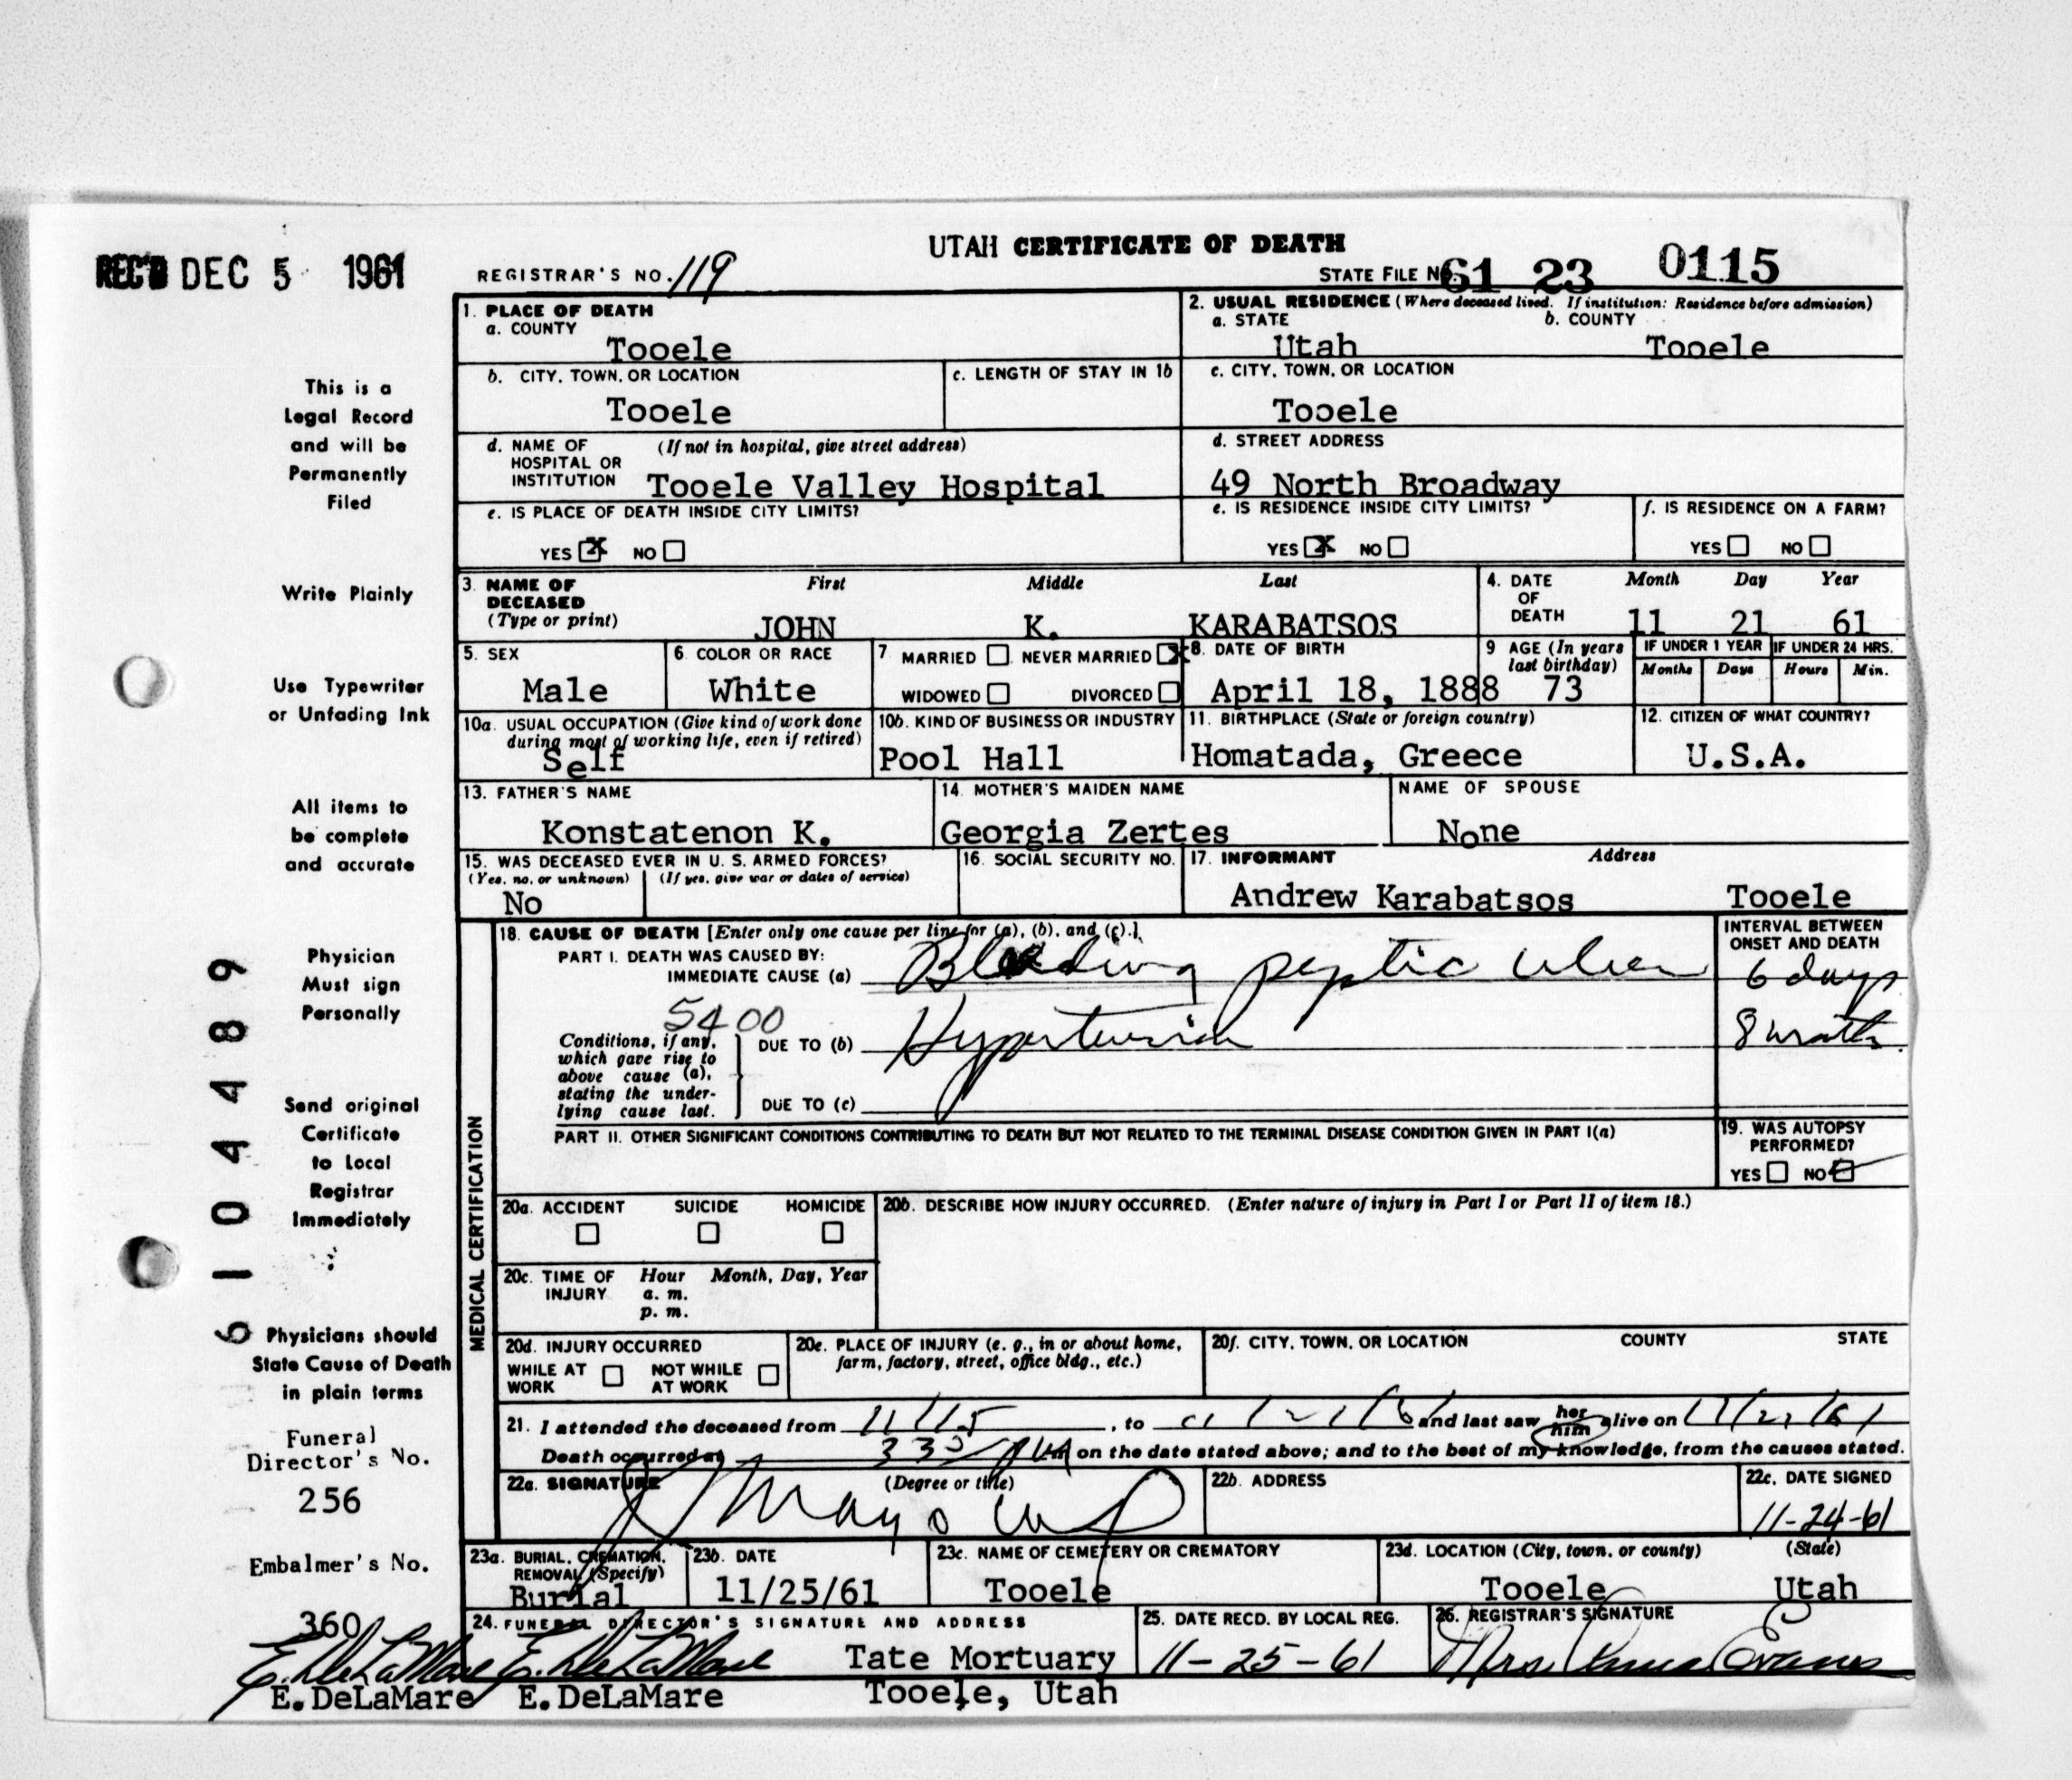 UTAH CERTIFICATE OF DEATH
REC'D DEC 5 1961
REGISTRAR'S NO. 119
STATE FILE NO. 61 23 0115
1. PLACE OF DEATH
a. COUNTY
Tooele
2. USUAL RESIDENCE (Where deceased lived. If institution: Residence before admission)
a. STATE b. COUNTY
Utah Tooele
b. CITY, TOWN, OR LOCATION
Tooele
c. LENGTH OF STAY IN 1b
c. CITY, TOWN, OR LOCATION
Tooele
d. NAME OF HOSPITAL OR INSTITUTION (If not in hospital, give street address)
Tooele Valley Hospital
d. STREET ADDRESS
49 North Broadway
e. IS PLACE OF DEATH INSIDE CITY LIMITS?
YES X NO
e. IS RESIDENCE INSIDE CITY LIMITS?
YES X NO
f. IS RESIDENCE ON A FARM?
YES NO
3. NAME OF DECEASED (Type or print)
First Middle Last
JOHN K. KARABATSOS
4. DATE OF DEATH
Month Day Year
11 21 61
5. SEX
Male
6. COLOR OR RACE
White
7. MARRIED NEVER MARRIED X
WIDOWED DIVORCED
8. DATE OF BIRTH
April 18, 1888
9 AGE (In years last birthday)
73
IF UNDER 1 YEAR IF UNDER 24 HRS.
Months Days Hours Min.
10a. USUAL OCCUPATION (Give kind of work done during most of working life, even if retired)
Self
10b. KIND OF BUSINESS OR INDUSTRY
Pool Hall
11. BIRTHPLACE (State or foreign country)
Homatada, Greece
12. CITIZEN OF WHAT COUNTRY?
U.S.A.
13. FATHER'S NAME
Konstatenon K.
14. MOTHER'S MAIDEN NAME
Georgia Zertes
NAME OF SPOUSE
None
15. WAS DECEASED EVER IN U. S. ARMED FORCES?
(Yes, no, or unknown) (If yes, give war or dates of service)
No
16. SOCIAL SECURITY NO.
17. INFORMANT Address
Andrew Karabatsos Tooele
MEDICAL CERTIFICATION
18. CAUSE OF DEATH [Enter only one cause per line for (a), (b), and (c).]
INTERVAL BETWEEN ONSET AND DEATH
PART I. DEATH WAS CAUSED BY:
IMMEDIATE CAUSE (a) Bleeding peptic ulcer 6 days
5400
Conditions, if any, which gave rise to above cause (a), stating the underlying cause last.
DUE TO (b) Hypertension 8 months
DUE TO (c)
PART II. OTHER SIGNIFICANT CONDITIONS CONTRIBUTING TO DEATH BUT NOT RELATED TO THE TERMINAL DISEASE CONDITION GIVEN IN PART I(a)
19. WAS AUTOPSY PERFORMED?
YES NO
20a. ACCIDENT SUICIDE HOMICIDE
20b. DESCRIBE HOW INJURY OCCURRED. (Enter nature of injury in Part I or Part II of item 18.)
20c. TIME OF INJURY Hour Month, Day, Year
a. m.
p. m.
20d. INJURY OCCURRED
WHILE AT WORK NOT WHILE AT WORK
20e. PLACE OF INJURY (e. g., in or about home, farm, factory, street, office bldg., etc.)
20f. CITY, TOWN, OR LOCATION COUNTY STATE
21. I attended the deceased from 11/15, to 11/21/61 and last saw her him alive on 11/21/61
Death occurred at 3 35 PM on the date stated above; and to the best of my knowledge, from the causes stated.
22a. SIGNATURE (Degree or title)
Mayo MD
22b. ADDRESS
22c. DATE SIGNED
11-24-61
23a. BURIAL, CREMATION, REMOVAL (Specify)
Burial
23b. DATE
11/25/61
23c. NAME OF CEMETERY OR CREMATORY
Tooele
23d. LOCATION (City, town, or county) (State)
Tooele Utah
24. FUNERAL DIRECTOR'S SIGNATURE AND ADDRESS
E. DeLaMare E. DeLaMare Tate Mortuary
E. DeLaMare E. DeLaMare Tooele, Utah
25. DATE RECD. BY LOCAL REG.
11-25-61
26. REGISTRAR'S SIGNATURE
Mrs. Evans
This is a
Legal Record
and will be
Permanently
Filed
Write Plainly
Use Typewriter
or Unfading Ink
All items to
be complete
and accurate
Physician
Must sign
Personally
Send original
Certificate
to Local
Registrar
Immediately
Physicians should
State Cause of Death
in plain terms
Funeral
Director's No.
256
Embalmer's No.
360
6104489